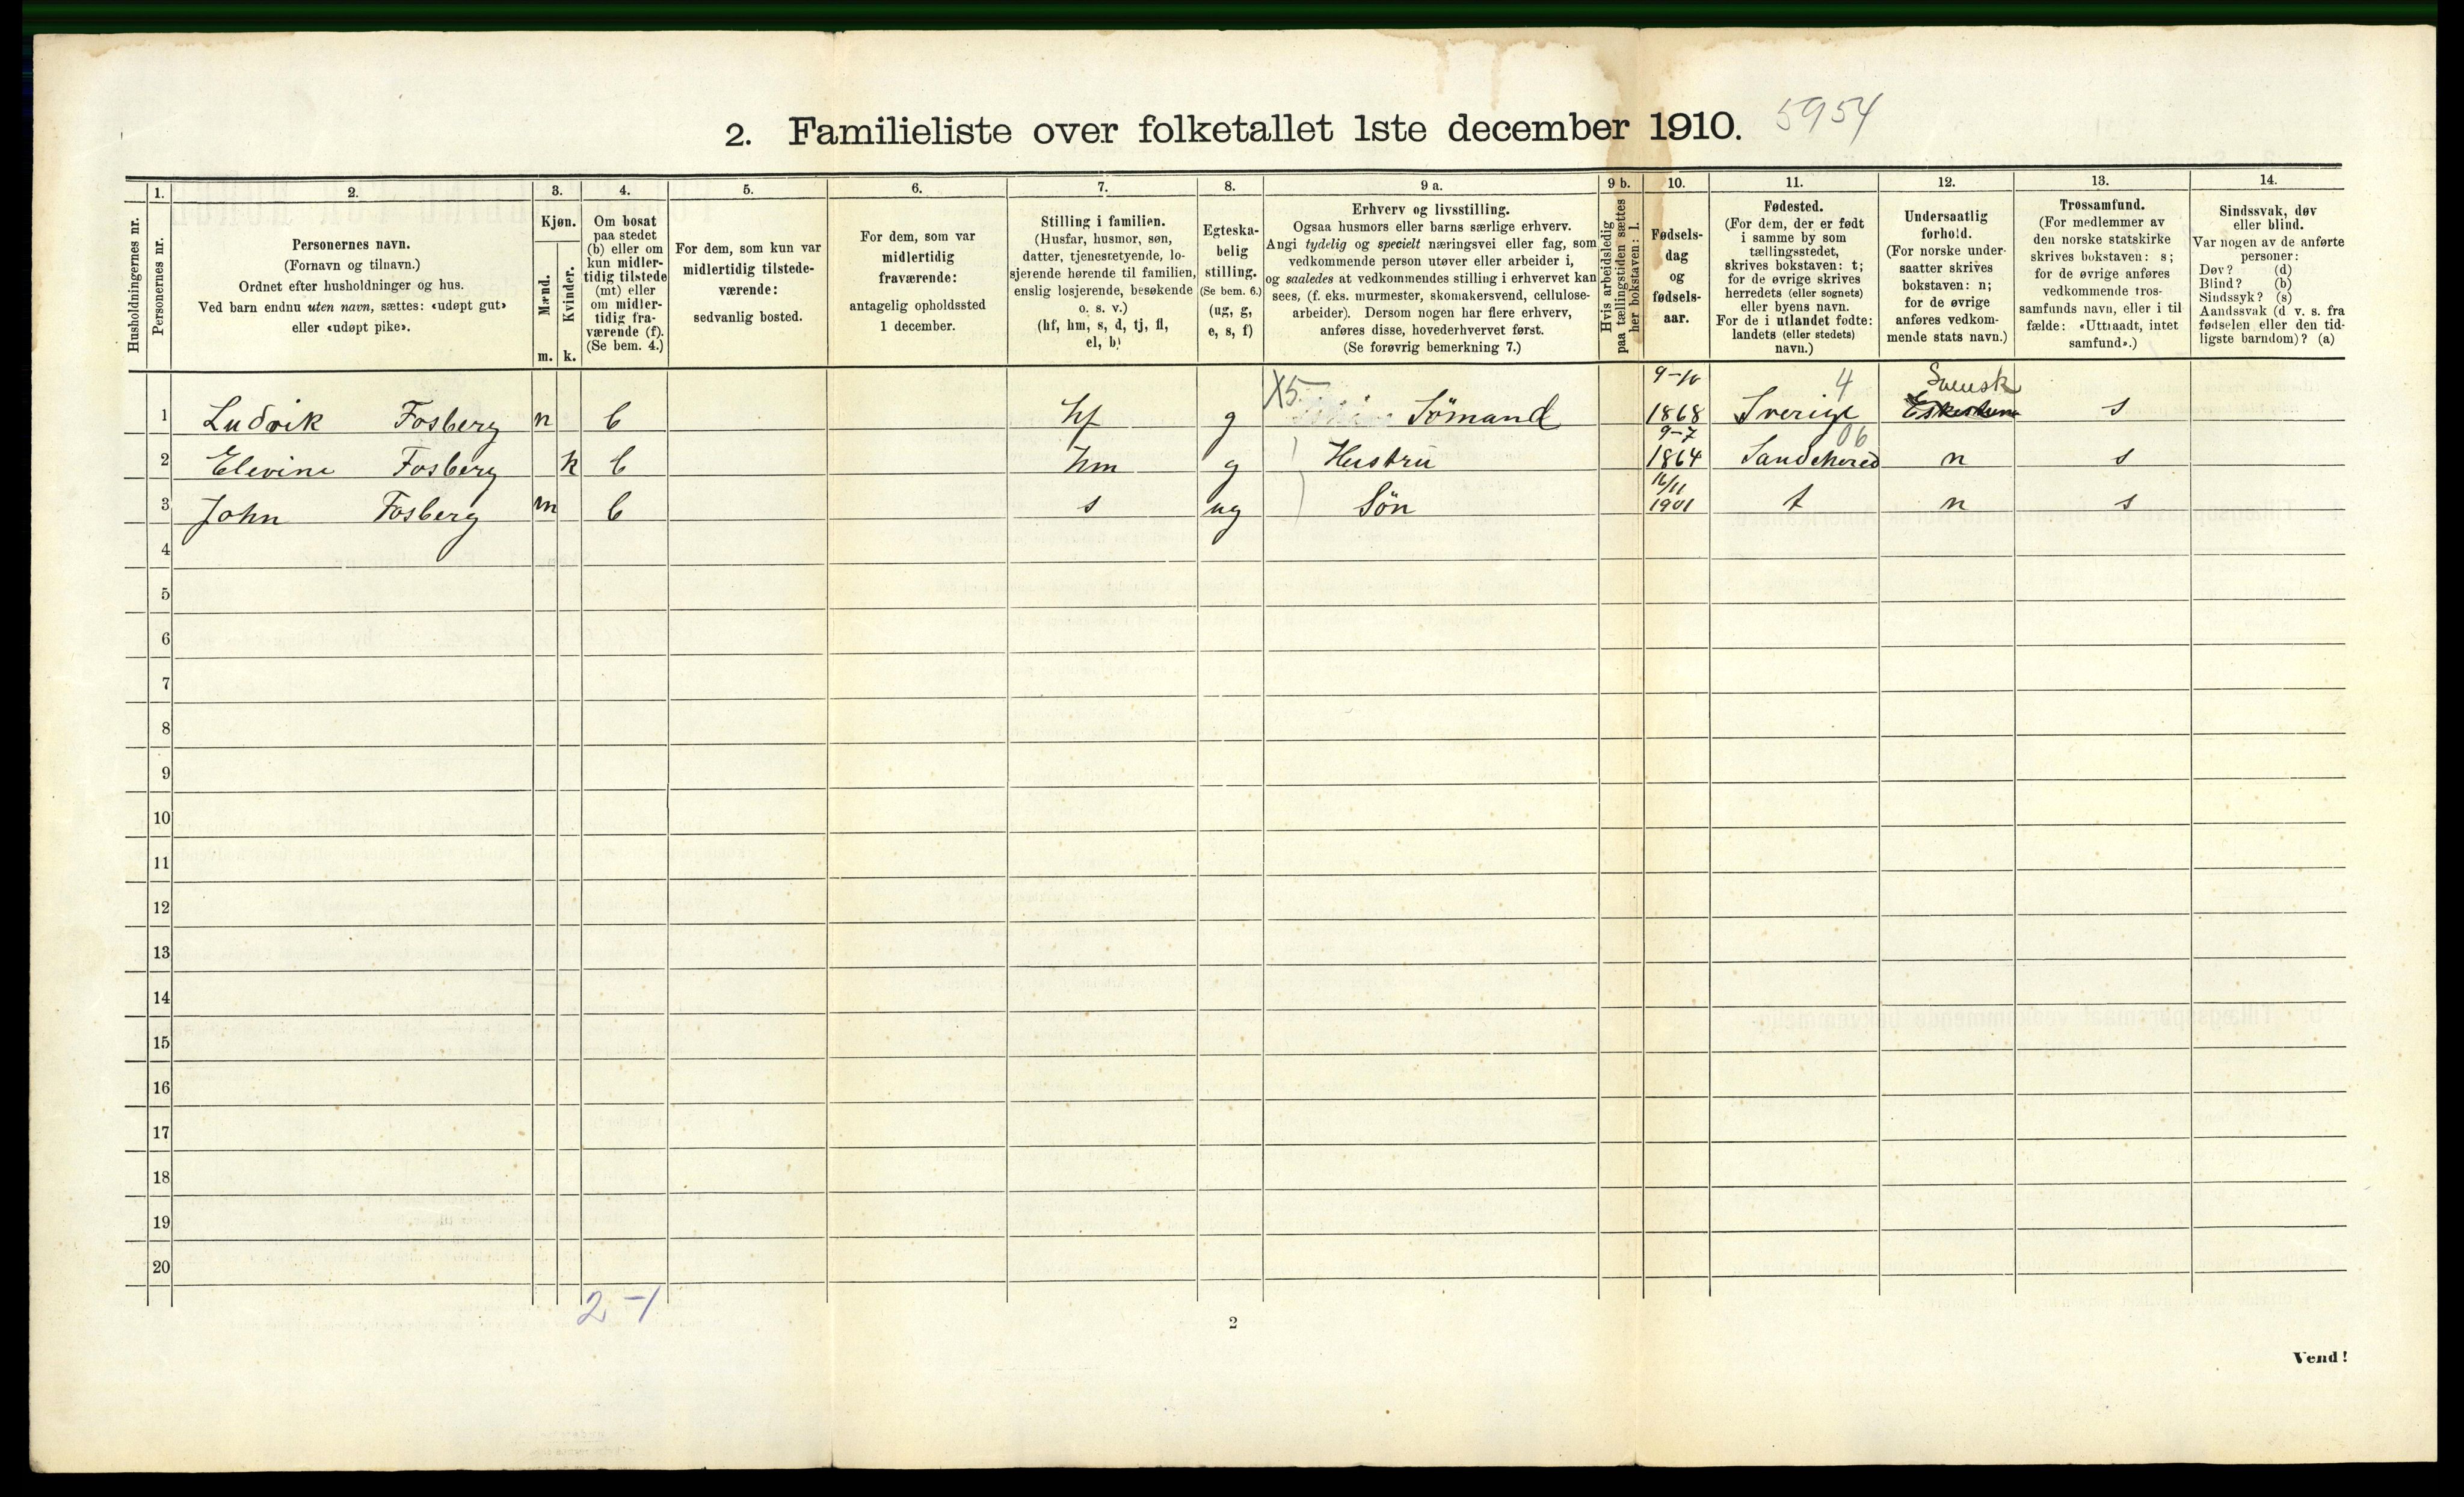 2. Familieliste over folketallet 1ste december 1910. 5954
Husholdningernes nr.
1.
Personernes nr.
2.
Personernes navn.
(Fornavn og tilnavn.)
Ordnet efter husholdninger og hus.
Ved barn endnu uten navn, sættes: «udøpt gut»
eller «udøpt pike».
3.
Kjøn.
Mænd.
m.
Kvinder.
k.
4.
Om bosat
paa stedet
(b) eller om
kun midler-
tidig tilstede
(mt) eller
om midler-
tidig fra-
værende (f).
(Se bem. 4.)
5.
For dem, som kun var
midlertidig tilstede-
værende:
sedvanlig bosted.
6.
For dem, som var
midlertidig
fraværende:
antagelig opholdssted
1 december.
7.
Stilling i familien.
(Husfar, husmor, søn,
datter, tjenestetyende, lo-
sjerende hørende til familien,
enslig losjerende, besøkende
o. s. v.)
(hf, hm, s, d, tj, fl,
el, b)
8.
Egteska-
belig
stilling.
(Se bem. 6.)
(ug, g,
e, s, f)
9 a.
Erhverv og livsstilling.
Ogsaa husmors eller barns særlige erhverv.
Angi tydelig og specielt næringsvei eller fag, som
vedkommende person utøver eller arbeider i,
og saaledes at vedkommendes stilling i erhvervet kan
sees, (f. eks. murmester, skomakersvend, cellulose-
arbeider). Dersom nogen har flere erhverv,
anføres disse, hovederhvervet først.
(Se forøvrig bemerkning 7.)
9 b.
Hvis arbeidsledig
paa tællingstiden sættes
her bokstaven: l.
10.
Fødsels-
dag
og
fødsels-
aar.
11.
Fødested.
(For dem, der er født
i samme by som
tællingsstedet,
skrives bokstaven: t;
for de øvrige skrives
herredets (eller sognets)
eller byens navn.
For de i utlandet fødte:
landets (eller stedets)
navn.)
12.
Undersaatlig
forhold.
(For norske under-
saatter skrives
bokstaven: n;
for de øvrige
anføres vedkom-
mende stats navn.)
13.
Trossamfund.
(For medlemmer av
den norske statskirke
skrives bokstaven: s;
for de øvrige anføres
vedkommende tros-
samfunds navn, eller i til
fælde: «Uttraadt, intet
samfund».)
14.
Sindssvak, døv
eller blind.
Var nogen av de anførte
personer:
Døv? (d)
Blind? (b)
Sindssyk? (s)
Aandssvak (d. v. s. fra
fødselen eller den tid-
ligste barndom)? (a)
X5 9-10 4 Svensk
1 Ludvik Fosberg m b hf g Sömand 1868 Sverige s
9-7 06
2 Elevine Fosberg k b hm g Hustru 1864 Sandehered n s
16/11
3 John Fosberg m b s ug Sön 1901 t n s
4
5
6
7
8
9
10
11
12
13
14
15
16
17
18
19
20
2-1
2
Vend!